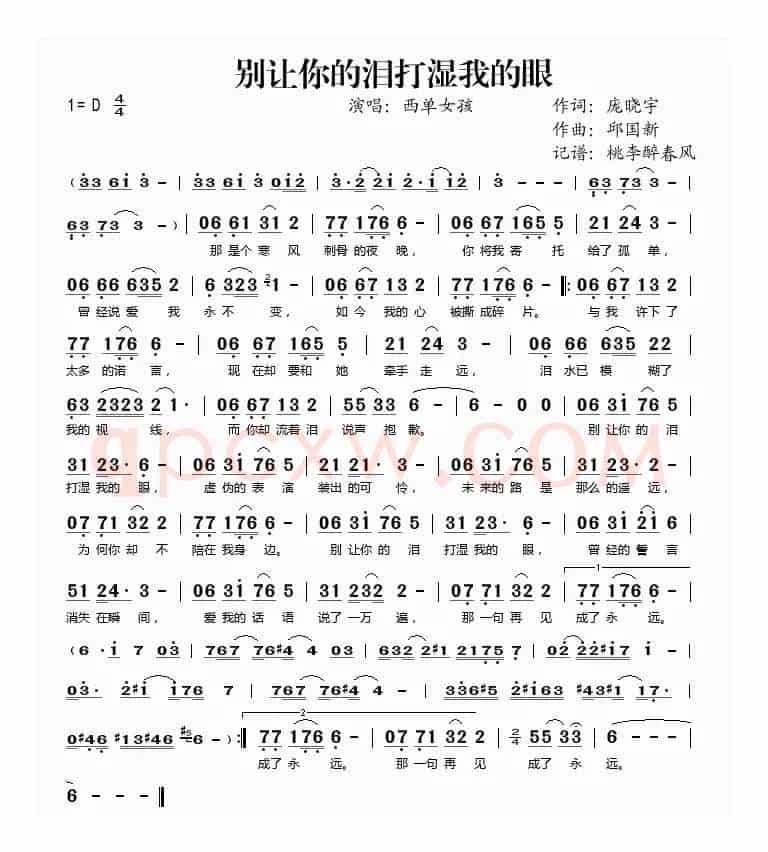 别让你的泪打湿我的眼
1= D 4/4 演唱：西单女孩 作词：庞晓宇
作曲：邱国新
记谱：桃李醉春风
( 33 6i 3 - | 33 6i 3 0i2 | 3·2 2i 2·i i2 | 3 - - - | 63 73 3 -
63 73 3 - ) | 06 61 31 2 | 77 176 6 - | 06 67 165 5 | 21 24 3 -
那是个寒风 刺骨的夜晚， 你将我寄托 给了孤单，
06 66 635 2 | 6 323 1 - | 06 67 13 2 | 77 17 6 - |: 06 67 13 2
曾经说爱我 永不变， 如今我的心 被撕成碎片。 与我许下了
77 176 6 - | 06 67 165 5 | 21 24 3 - | 06 66 635 22
太多的诺言， 现在却要和她 牵手走远， 泪水已模糊了
63 2323 2 1· | 06 67 13 2 | 55 33 6 - | 6 - 0 0 | 06 3i 76 5
我的视线， 而你却流着泪 说声抱歉。 别让你的泪
31 23· 6 - | 06 3i 76 5 | 21 21· 3 - | 06 3i 76 5 | 31 23· 6 -
打湿我的眼， 虚伪的表演 装出的可怜， 未来的路是 那么的遥远，
07 71 32 2 | 77 176 6 - | 06 3i 76 5 | 31 23· 6 - | 06 3i 2i 6
为何你却不 陪在我身边。 别让你的泪 打湿我的眼， 曾经的誓言
51 24· 3 - | 06 3i 76 5 | 31 33 2 - | 07 71 32 2 | 1 77 176 6 -
消失在瞬间， 爱我的话语 说了一万遍， 那一句再见 成了永远。
( 6·i 7 03 | 767 76#4 4 03 | 632 2#1 2175 7 | 02 22#i7 i -
03· 2#i i76 7 | 767 76#4 4 - | 336#5 2#i63 #43#1 17·
0#46 #13#46 #5 6 - ) :| 2 77 176 6 - | 07 71 32 2 | 2/4 55 33 | 6 - - -
成了永远。 那一句再见 成了永远。
6 - - - ||
qpcxw.COM